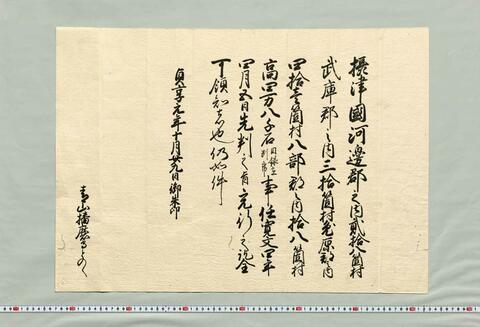 摂津國河邊郡之内貳拾八箇村
武庫郡之内三拾箇村菟原郡之内
四拾壹箇村八部郡之内拾八箇村
高四万八千石目録在別紙事任寛文四年
四月五日先判之旨充行之訖全
可領知者也仍如件
貞享元年十月廿九日御朱印
青山播磨守とのへ